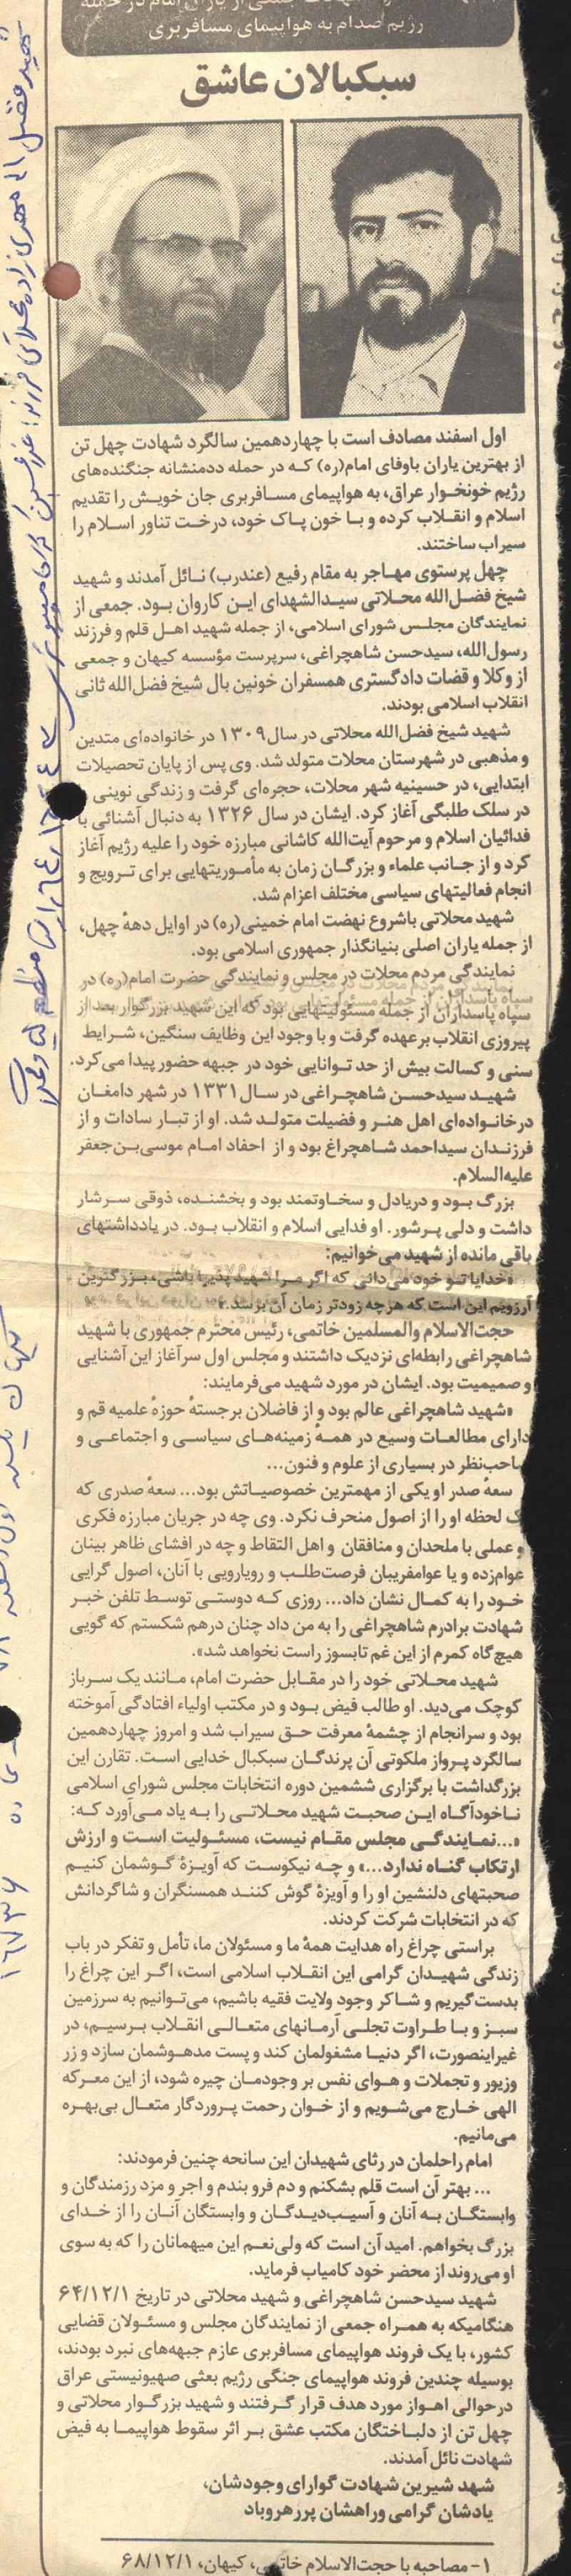 رژیم صدام به هواپیمای مسافربری
سبکبالان عاشق
اول اسفند مصادف است با چهاردهمین سالگرد شهادت چهل تن
از بهترین یاران باوفای امام(ره) که در حمله ددمنشانه جنگنده‌های
رژیم خونخوار عراق، به هواپیمای مسافربری جان خویش را تقدیم
اسلام و انقلاب کرده و با خون پاک خود، درخت تناور اسلام را
سیراب ساختند.
چهل پرستوی مهاجر به مقام رفیع (عندرب) نائل آمدند و شهید
شیخ فضل‌الله محلاتی سیدالشهدای این کاروان بود. جمعی از
نمایندگان مجلس شورای اسلامی، از جمله شهید اهل قلم و فرزند
رسول‌الله، سیدحسن شاهچراغی، سرپرست مؤسسه کیهان و جمعی
از وکلا و قضات دادگستری همسفران خونین بال شیخ فضل‌الله ثانی
انقلاب اسلامی بودند.
شهید شیخ فضل‌الله محلاتی در سال ۱۳۰۹ در خانواده‌ای متدین
و مذهبی در شهرستان محلات متولد شد. وی پس از پایان تحصیلات
ابتدایی، در حسینیه شهر محلات، حجره‌ای گرفت و زندگی نوینی
در سلک طلبگی آغاز کرد. ایشان در سال ۱۳۲۶ به دنبال آشنائی با
فدائیان اسلام و مرحوم آیت‌الله کاشانی مبارزه خود را علیه رژیم آغاز
کرد و از جانب علماء و بزرگان زمان به مأموریتهایی برای ترویج و
انجام فعالیتهای سیاسی مختلف اعزام شد.
شهید محلاتی باشروع نهضت امام خمینی(ره) در اوایل دههٔ چهل،
از جمله یاران اصلی بنیانگذار جمهوری اسلامی بود.
نمایندگی مردم محلات در مجلس و نمایندگی حضرت امام(ره) در
سپاه پاسداران از جمله مسئولیتهایی بود که این شهید بزرگوار بعد از
پیروزی انقلاب برعهده گرفت و با وجود این وظایف سنگین، شرایط
سنی و کسالت بیش از حد توانایی خود در جبهه حضور پیدا می‌کرد.
شهید سیدحسن شاهچراغی در سال ۱۳۳۱ در شهر دامغان
درخانواده‌ای اهل هنر و فضیلت متولد شد. او از تبار سادات و از
فرزندان سیداحمد شاهچراغ بود و از احفاد امام موسی‌بن‌جعفر
علیه‌السلام.
بزرگ بود و دریادل و سخاوتمند بود و بخشنده، ذوقی سرشار
داشت و دلی پرشور. او فدایی اسلام و انقلاب بود. در یادداشتهای
باقی مانده از شهید می‌خوانیم:
«خدایا تو خود می‌دانی که اگر مرا شهید پذیرا باشی، بزرگترین
آرزویم این است که هرچه زودتر زمان آن برسد.»
حجت‌الاسلام والمسلمین خاتمی، رئیس محترم جمهوری با شهید
شاهچراغی رابطه‌ای نزدیک داشتند و مجلس اول سرآغاز این آشنایی
و صمیمیت بود. ایشان در مورد شهید می‌فرمایند:
«شهید شاهچراغی عالم بود و از فاضلان برجستهٔ حوزهٔ علمیه قم و
دارای مطالعات وسیع در همهٔ زمینه‌های سیاسی و اجتماعی و
صاحب‌نظر در بسیاری از علوم و فنون...
سعهٔ صدر او یکی از مهمترین خصوصیاتش بود... سعهٔ صدری که
ک لحظه او را از اصول منحرف نکرد. وی چه در جریان مبارزه فکری
و عملی با ملحدان و منافقان و اهل التقاط و چه در افشای ظاهر بینان
عوام‌زده و یا عوامفریبان فرصت‌طلب و رویارویی با آنان، اصول گرایی
خود را به کمال نشان داد... روزی که دوستی توسط تلفن خبر
شهادت برادرم شاهچراغی را به من داد چنان درهم شکستم که گویی
هیچ‌گاه کمرم از این غم تابسوز راست نخواهد شد».
شهید محلاتی خود را در مقابل حضرت امام، مانند یک سرباز
کوچک می‌دید. او طالب فیض بود و در مکتب اولیاء افتادگی آموخته
بود و سرانجام از چشمهٔ معرفت حق سیراب شد و امروز چهاردهمین
سالگرد پرواز ملکوتی آن پرندگان سبکبال خدایی است. تقارن این
بزرگداشت با برگزاری ششمین دوره انتخابات مجلس شورای اسلامی
ناخودآگاه این صحبت شهید محلاتی را به یاد می‌آورد که:
«...نمایندگی مجلس مقام نیست، مسئولیت است و ارزش
ارتکاب گناه ندارد...» و چه نیکوست که آویزهٔ گوشمان کنیم
صحبتهای دلنشین او را و آویزهٔ گوش کنند همسنگران و شاگردانش
که در انتخابات شرکت کردند.
براستی چراغ راه هدایت همهٔ ما و مسئولان ما، تأمل و تفکر در باب
زندگی شهیدان گرامی این انقلاب اسلامی است، اگر این چراغ را
بدست‌گیریم و شاکر وجود ولایت فقیه باشیم، می‌توانیم به سرزمین
سبز و با طراوت تجلی آرمانهای متعالی انقلاب برسیم، در
غیراینصورت، اگر دنیا مشغولمان کند و پست مدهوشمان سازد و زر
وزیور و تجملات و هوای نفس بر وجودمان چیره شود، از این معرکه
الهی خارج می‌شویم و از خوان رحمت پروردگار متعال بی‌بهره
می‌مانیم.
امام راحلمان در رثای شهیدان این سانحه چنین فرمودند:
... بهتر آن است قلم بشکنم و دم فرو بندم و اجر و مزد رزمندگان و
وابستگان به آنان و آسیب‌دیدگان و وابستگان آنان را از خدای
بزرگ بخواهم. امید آن است که ولی‌نعم این میهمانان را که به سوی
او می‌روند از محضر خود کامیاب فرماید.
شهید سیدحسن شاهچراغی و شهید محلاتی در تاریخ ۶۴/۱۲/۱
هنگامیکه به همراه جمعی از نمایندگان مجلس و مسئولان قضایی
کشور، با یک فروند هواپیمای مسافربری عازم جبهه‌های نبرد بودند،
بوسیله چندین فروند هواپیمای جنگی رژیم بعثی صهیونیستی عراق
درحوالی اهواز مورد هدف قرار گرفتند و شهید بزرگوار محلاتی و
چهل تن از دلباختگان مکتب عشق بر اثر سقوط هواپیما به فیض
شهادت نائل آمدند.
شهد شیرین شهادت گوارای وجودشان،
یادشان گرامی و راهشان پررهروباد
۱- مصاحبه با حجت‌الاسلام خاتمی، کیهان، ۶۸/۱۲/۱